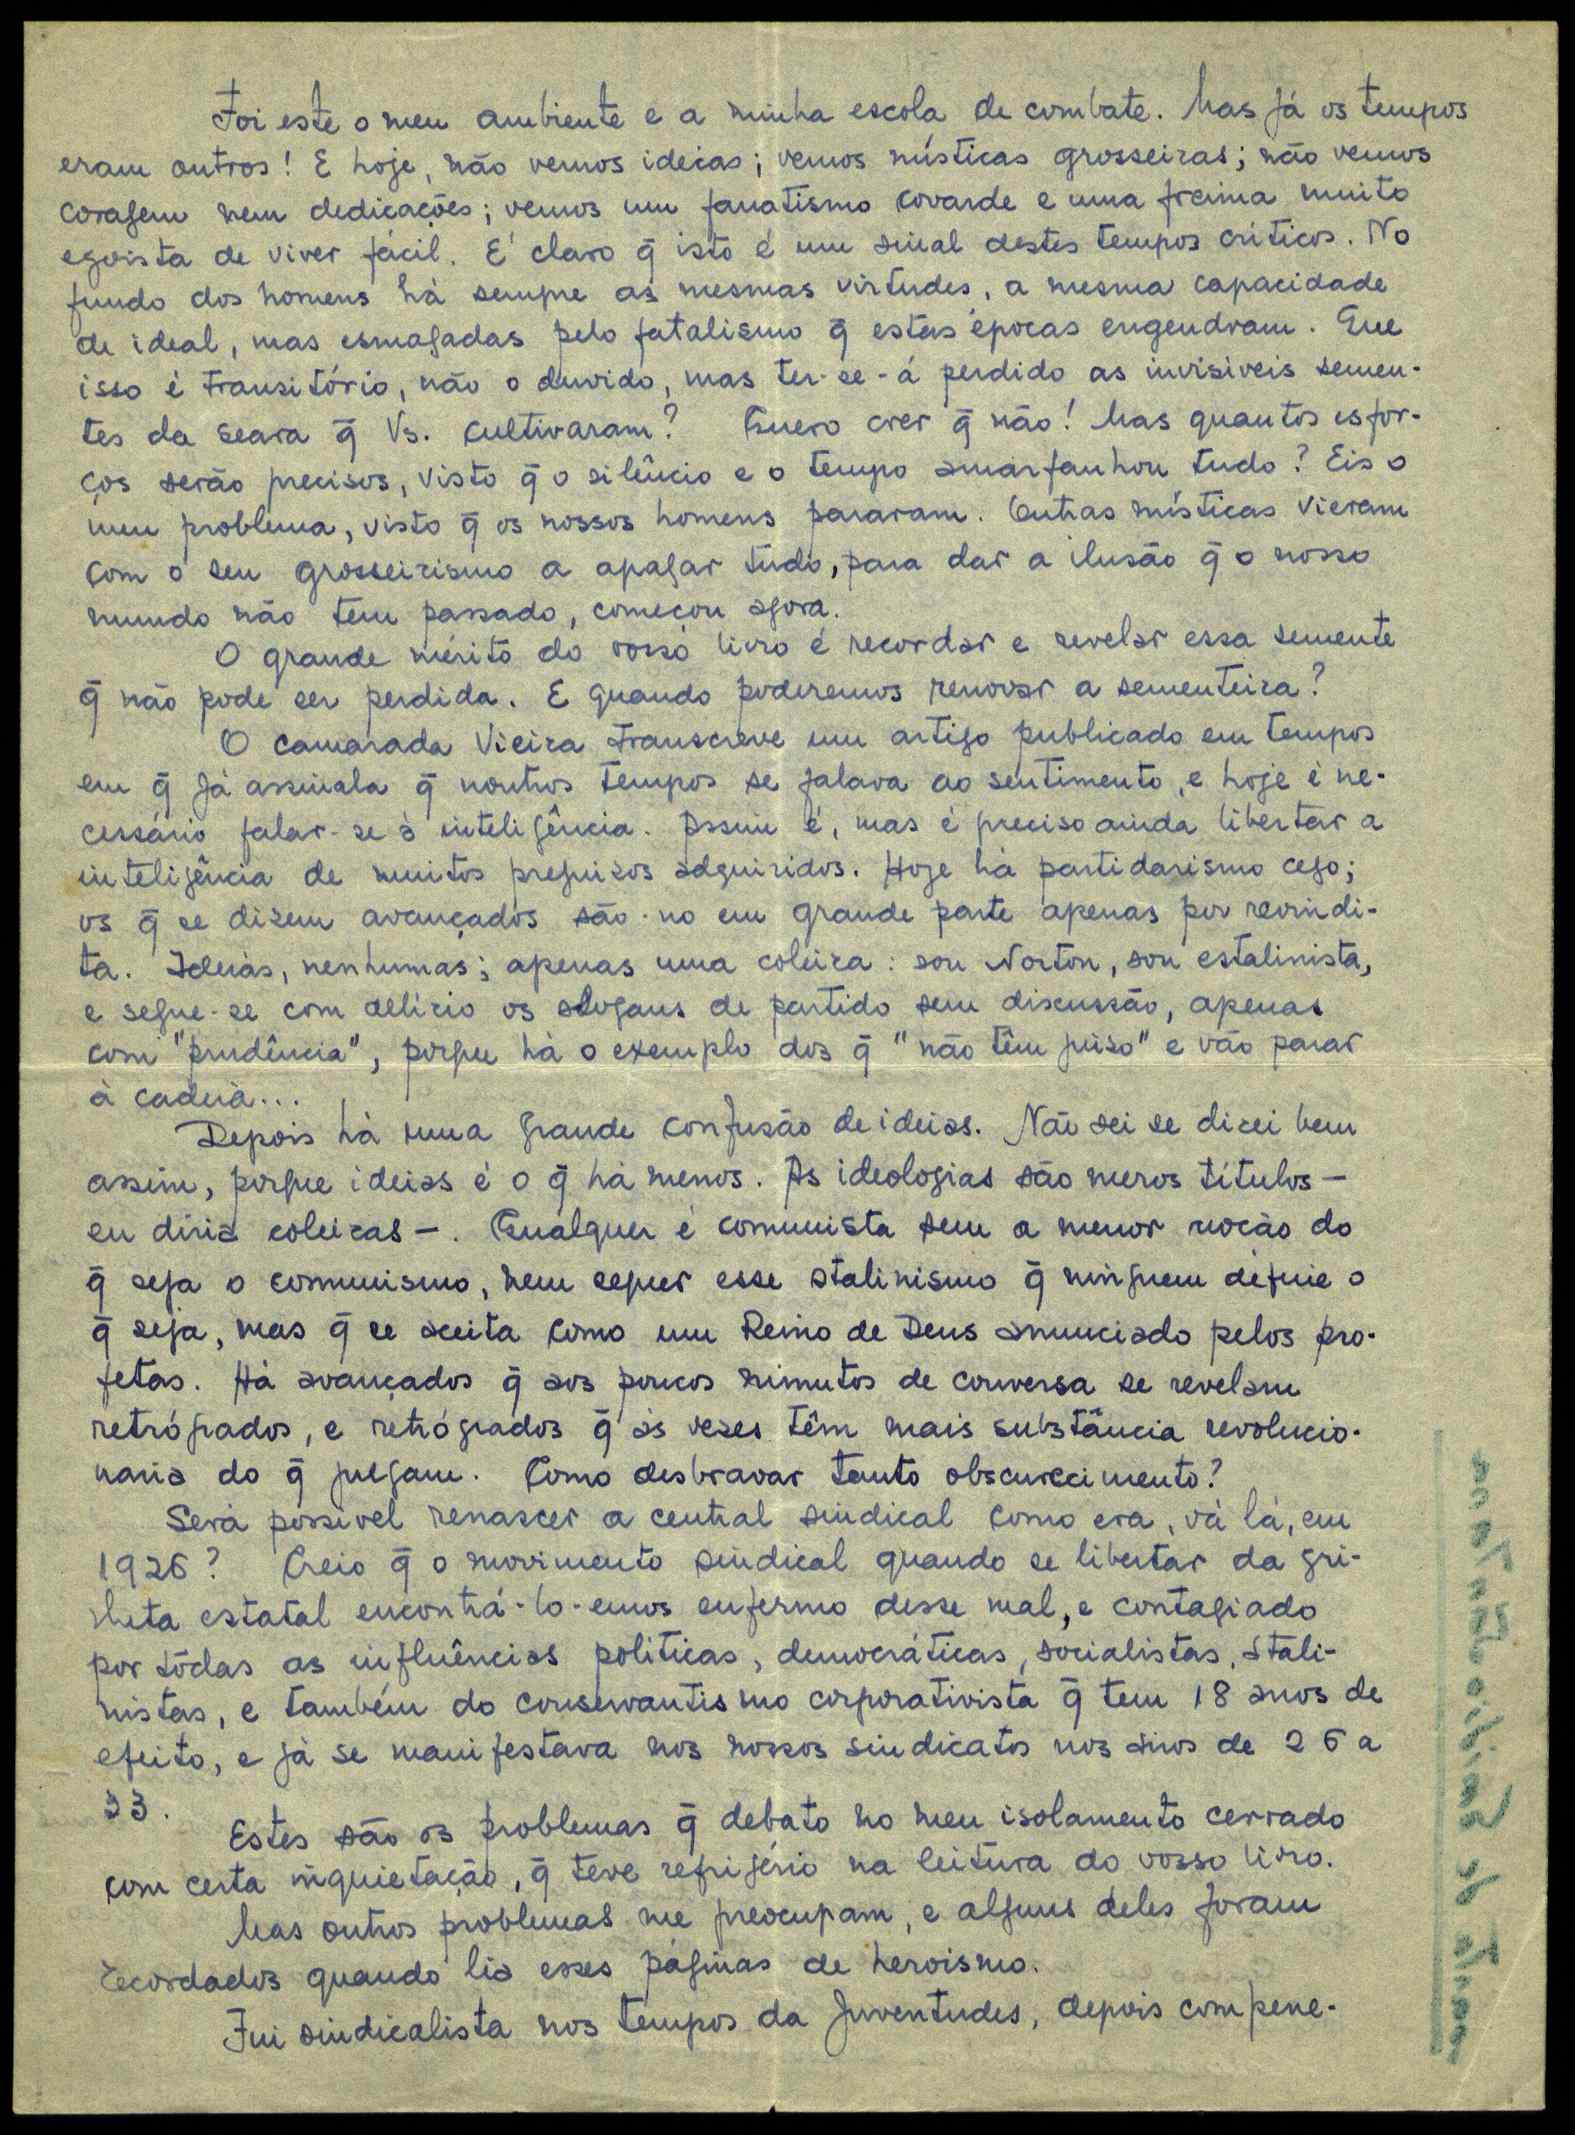 Foi este o meu ambiente e a minha escola de combate. Mas já os tempos
eram outros! E hoje, não vemos ideias; vemos místicas grosseiras; não vemos
coragem nem dedicações; vemos um fanatismo covarde e uma freima muito
egoista de viver fácil. É claro q̄ isto é um sinal destes tempos críticos. No
fundo dos homens há sempre as mesmas virtudes, a mesma capacidade
de ideal, mas esmagadas pelo fatalismo q̄ estas épocas engendram. Que
isso é transitório, não o duvido, mas ter-se-á perdido as invisiveis semen-
tes da seara q̄ Vs. cultivaram? Quero crer q̄ não! Mas quantos esfor-
ços serão precisos, visto q̄ o silêncio e o tempo amarfanhou tudo? Eis o
meu problema, visto q̄ os nossos homens pararam. Outras místicas vieram
com o seu grosseirismo a apagar tudo, para dar a ilusão q̄ o nosso
mundo não tem passado, começou agora.
O grande mérito do vosso livro é recordar e revelar essa semente
q̄ não pode ser perdida. E quando poderemos renovar a sementeira?
O camarada Vieira transcreve um artigo publicado em tempos
em q̄ já assinala q̄ noutros tempos se falava ao sentimento, e hoje é ne-
cessário falar-se à inteligência. Assim é, mas é preciso ainda libertar a
inteligência de muitos prejuizos adquiridos. Hoje há partidarismo cego;
os q̄ se dizem avançados são-no em grande parte apenas por revindi-
ta. Ideias, nenhumas; apenas uma coleira: sou Norton, sou estalinista,
e segue-se com delírio os slogans de partido sem discussão, apenas
com "prudência", porque há o exemplo dos q̄ "não têm juizo" e vão parar
à cadeia...
Depois há uma grande confusão de ideias. Não sei se direi bem
assim, porque ideias é o q̄ há menos. As ideologias são meros títulos —
eu diria coleiras —. Qualquer é comunista sem a menor noção do
q̄ seja o comunismo, nem sequer esse stalinismo q̄ ninguem define o
q̄ seja, mas q̄ se aceita como um Reino de Deus anunciado pelos pro-
fetas. Há avançados q̄ aos poucos minutos de conversa se revelam
retrógrados, e retrógrados q̄ às vezes têm mais substância revolucio-
naria do q̄ julgam. Como desbravar tanto obscurecimento?
Será possivel renascer a central sindical como era, vá lá, em
1926? Creio q̄ o movimento sindical quando se libertar da gri-
lheta estatal encontrá-lo-emos enfermo desse mal, e contagiado
por tôdas as influências politicas, democráticas, socialistas, stali-
nistas, e também do conservantismo corporativista q̄ tem 18 anos de
efeito, e já se manifestava nos nossos sindicatos nos anos de 26 a
33.
Estes são os problemas q̄ debato no meu isolamento cerrado
com certa inquietação, q̄ teve refrigério na leitura do vosso livro.
Mas outros problemas me preocupam, e alguns deles foram
recordados quando lia esses páginas de heroismo.
Fui sindicalista nos tempos da Juventudes, depois compene-